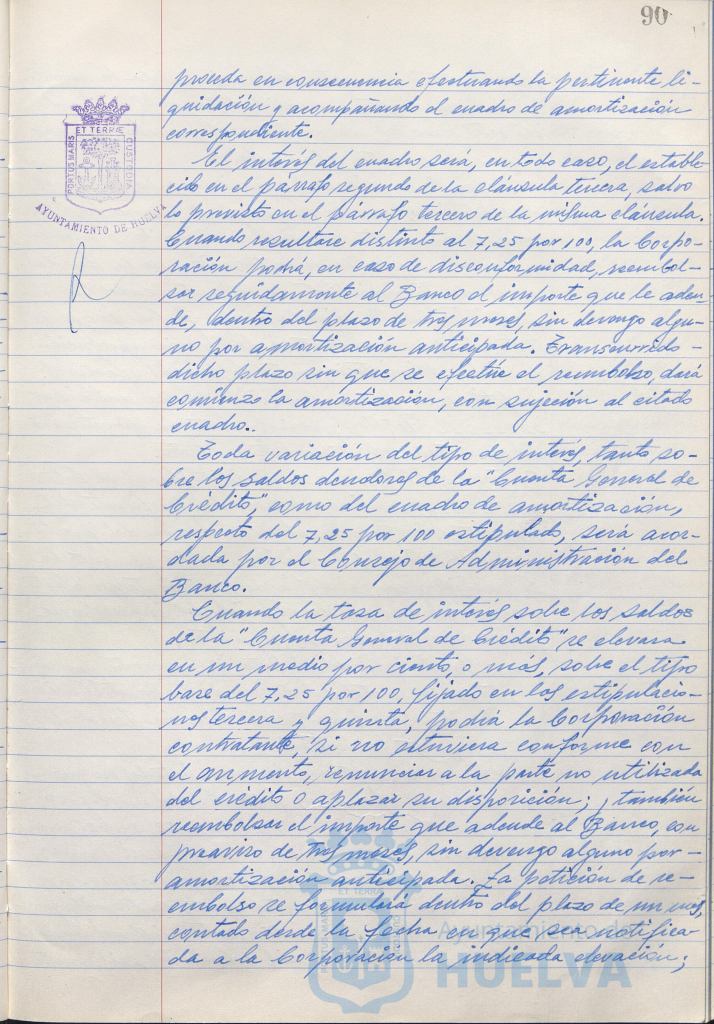 90
proceda en consecuencia efectuando la pertinente li-
quidación y acompañando el cuadro de amortización
correspondiente.
El interés del cuadro será, en todo caso, el estable-
cido en el párrafo segundo de la cláusula tercera, salvo
lo previsto en el párrafo tercero de la misma cláusula.
Cuando resultare distinto al 7,25 por 100, la Corpo-
ración podrá, en caso de disconformidad, reembol-
sar seguidamente al Banco el importe que le adeu-
de, dentro del plazo de tres meses, sin devengo algu-
no por amortización anticipada. Transcurrido-
dicho plazo sin que se efectúe el reembolso, dará
comienzo la amortización, con sujeción al citado
cuadro..
Toda variación del tipo de interés, tanto so-
bre los saldos deudores de la "Cuenta General de
Crédito", como del cuadro de amortización,
respecto del 7,25 por 100 estipulado, será acor-
dada por el Consejo de Administración del
Banco.
Cuando la tasa de interés sobre los saldos
de la "Cuenta General de Crédito" se elevara
en un medio por ciento, o más, sobre el tipo
base del 7,25 por 100, fijado en las estipulacio-
nes tercera y quinta, podrá la Corporación
contratante, si no estuviera conforme con
el aumento, renunciar a la parte no utilizada
del crédito o aplazar su disposición; también
reembolsar el importe que adeude al Banco, con
preaviso de tres meses, sin devengo alguno por-
amortización anticipada. La petición de re-
embolso se formulará dentro del plazo de un mes,
contado desde la fecha en que sea notifica-
da a la Corporación la indicada elevación;
PORTUS MARIS
ET TERRAE
CUSTODIA
AYUNTAMIENTO DE HUELVA
Ayuntamiento de
HUELVA